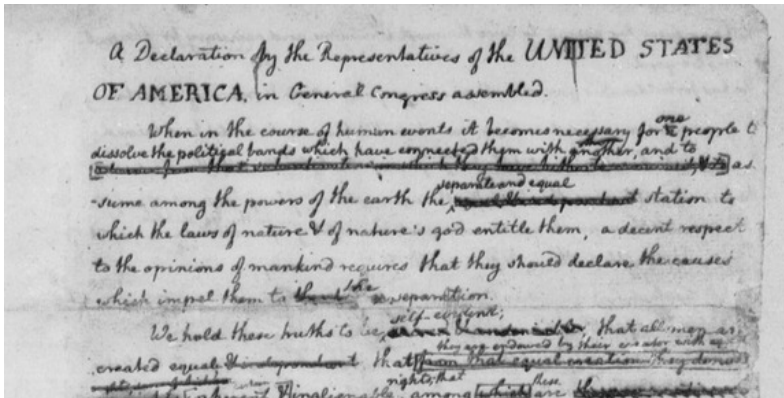 A Declaration by the Representatives of the UNITED STATES
OF AMERICA, in General Congress assembled.
When in the course of human events it becomes necessary for one people to
dissolve the political bands which have connected them with another, and to
as
-sume among the powers of the earth the separate and equal station to
which the laws of nature & of nature's god entitle them, a decent respect
to the opinions of mankind requires that they should declare the causes
which impel them to the separation.
We hold these truths to be self-evident; that all men are
created equal & independent that they are endowed by their creator with
from that equal creation they
rights; that these
inherent & inalienable, among which are